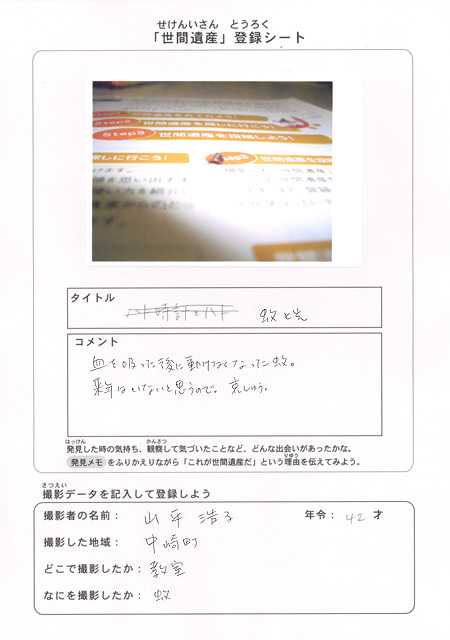 せけんいさん とうろく
「世間遺産」登録シート
Step2 世間遺産を探しに行こう!
Step3 世間遺産を投稿しよう!
探しに行こう!
世間遺産を投稿
タイトル
蚊と光
コメント
血を吸った後に動けなくなった蚊。
来年はいないと思うので。哀しゅう。
はっけん かんさつ
発見した時の気持ち、観察して気づいたことなど、どんな出会いがあったかな。
りゆう
発見メモ をふりかえりながら「これが世間遺産だ」という理由を伝えてみよう。
さつえい
撮影データを記入して登録しよう
撮影者の名前: 山平 浩子 年令: 42 才
撮影した地域: 中崎町
どこで撮影したか: 教室
なにを撮影したか: 蚊